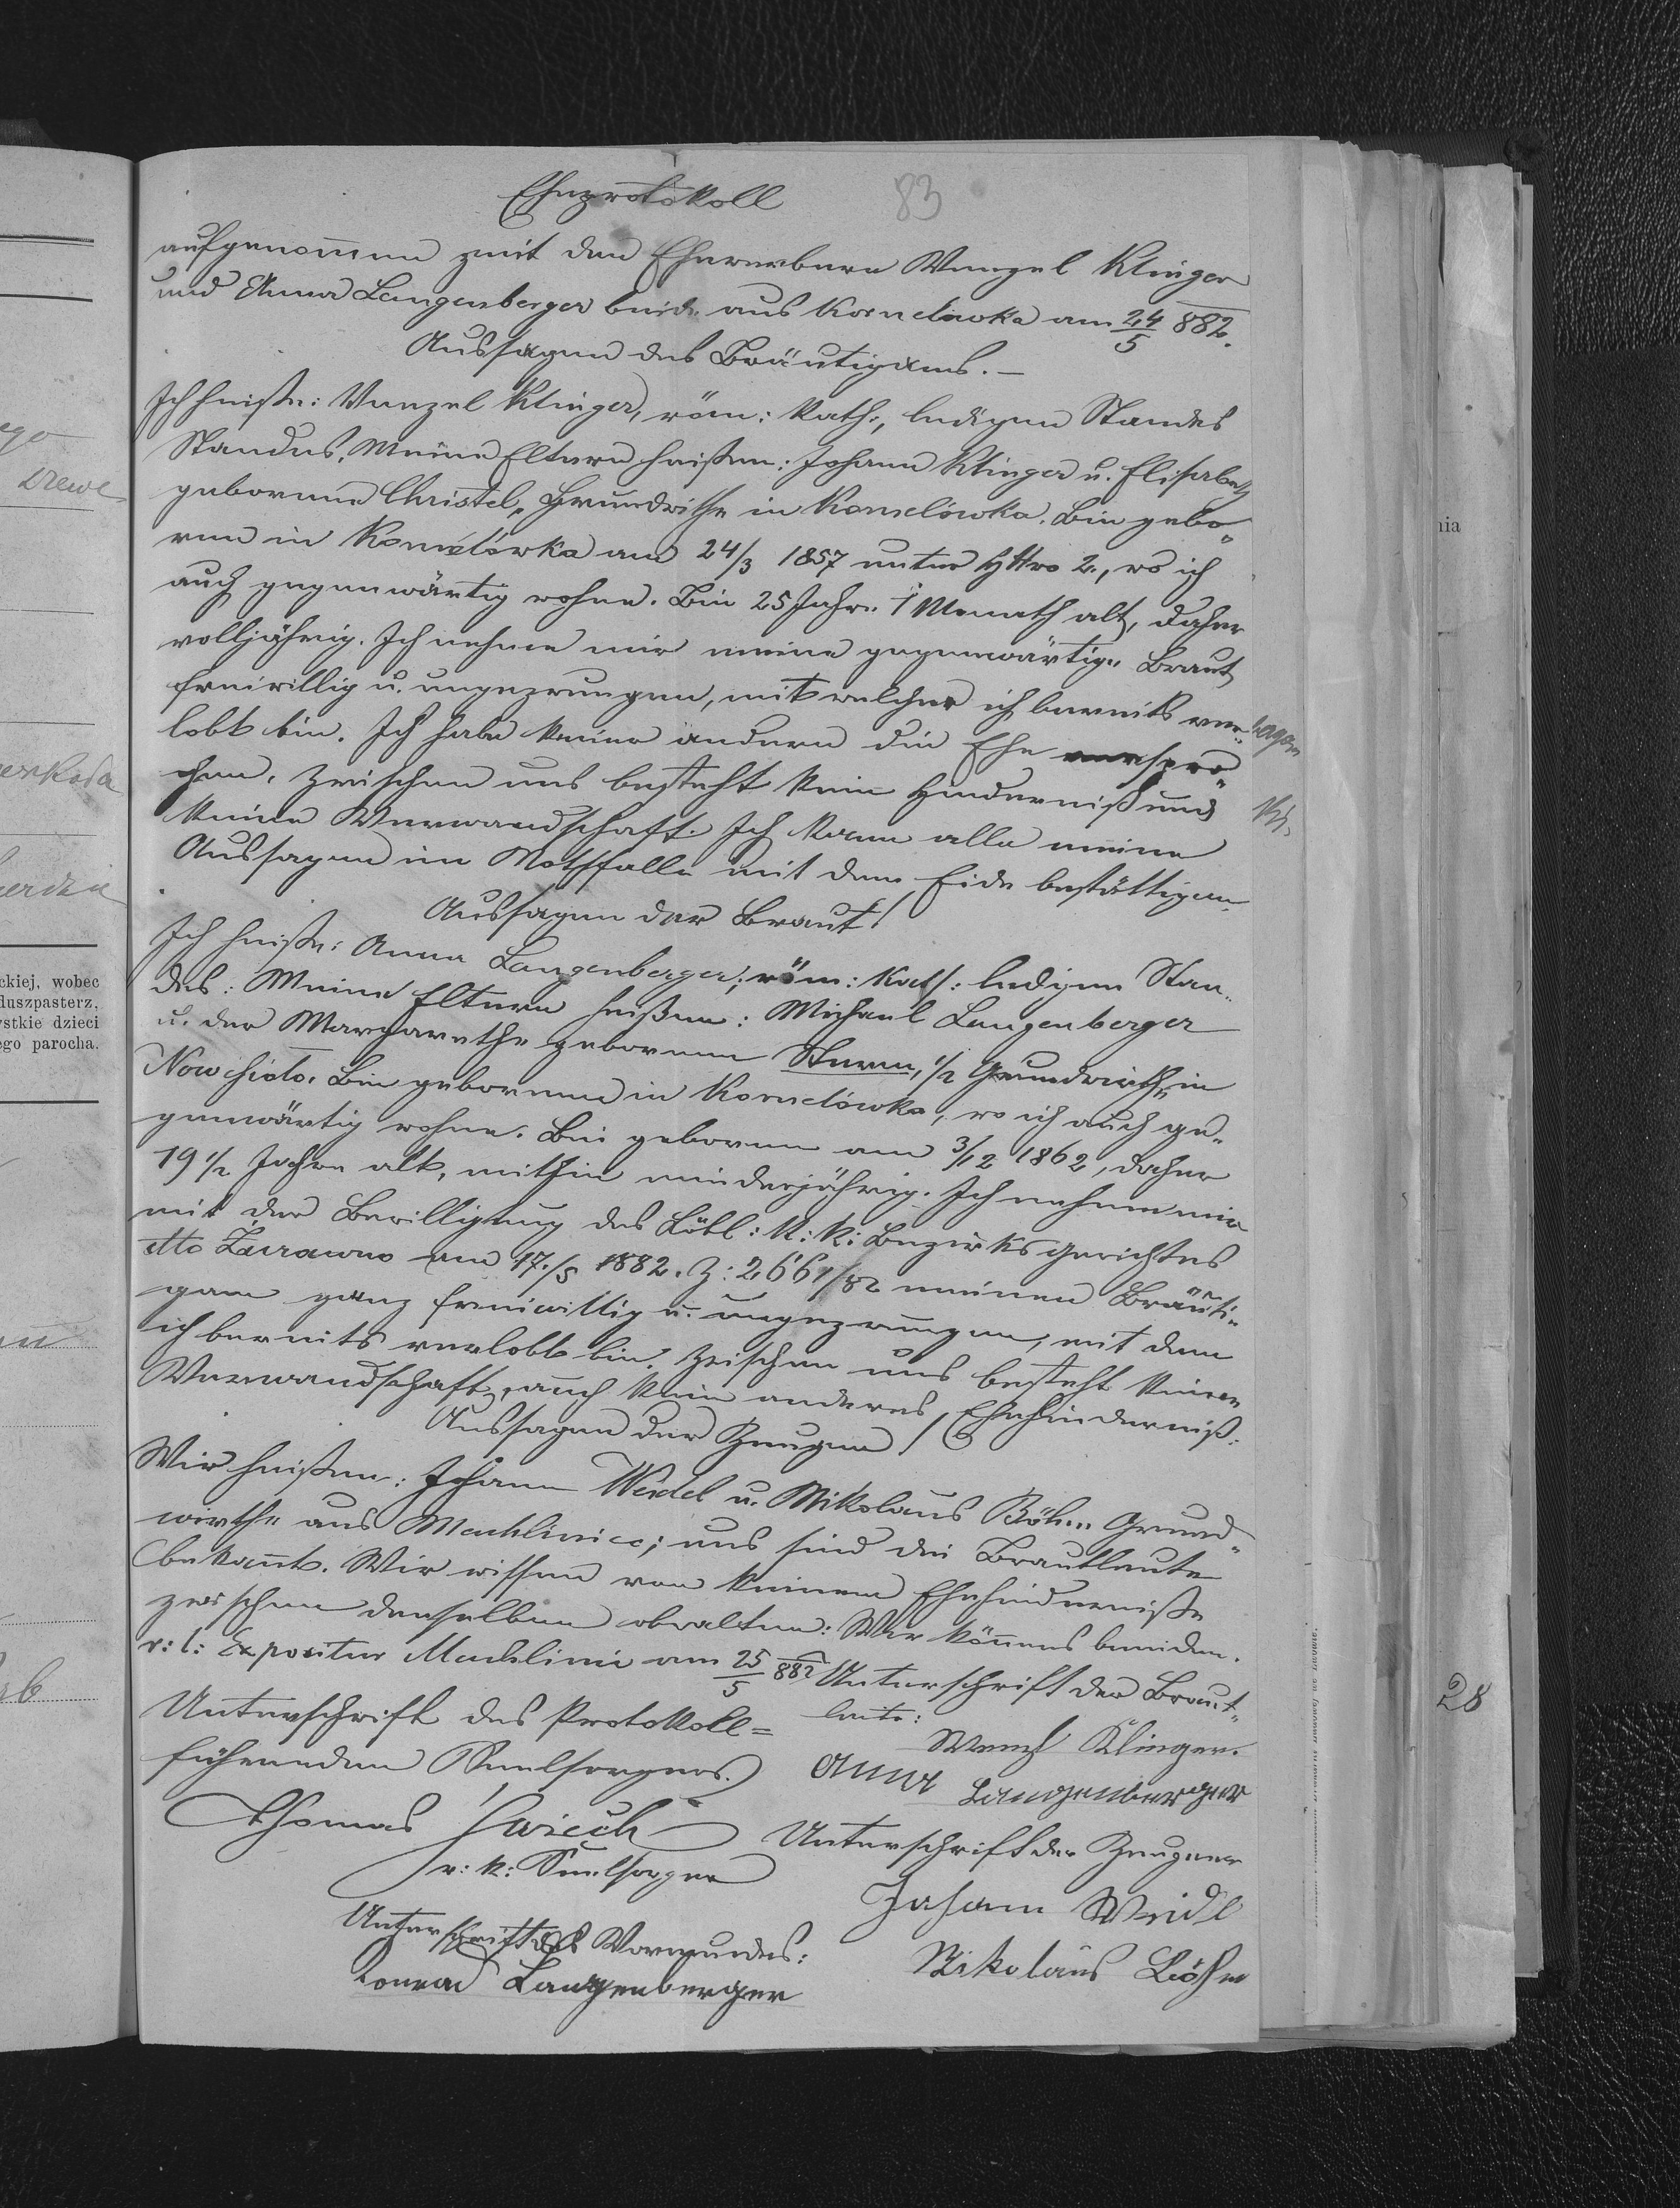 Eheprotokoll 83
aufgenom̅en mit den Ehewerbern Wenzel Klinger
und Anna Langenberger beide aus Kornelówka am 24/5 882.
Aussagen des Bräutigams. –
Ich heiße: Wenzel Klinger, röm: kath:, ledigen Standes
Standes. Meine Eltern heißen: Johann Klinger u. Elisabeth
geborenne Christel, Grundwirthe in Kornelówka. Bin gebo„
ren in Kornelówka am 24/3 1857 unter HNro 2., wo ich
auch gegenwärtig wohne. Bin 25 Jahre 1 Monath alt, daher
volljährig. Ich nehme mir meine gegenwärtige Braut
freiwillig u. ungezwungen, mit welcher ich bereits ver„
lobt bin. Ich habe keiner andern die Ehe verspro„
chen. Zwischen uns besteht kein Hinderniß und
keine Verwandschaft. Ich kann alle meine
Aussagen im Nothfalle mit dem Eide bestättigen.
Aussagen der Braut!
Ich heiße: Anna Langenberger; röm: kath: ledigen Stan„
des: Meine Eltern heißen: Michael Langenberger
u. der Margarethe geborenen Sturm, 1/2 Grundwirth in
Nowesioło. Bin geborenne in Kornelówka, wo ich auch ge„
genwärtig wohne. Bin geboren am 3/12 1862, daher
19 1/2 Jahre alt, mithin minderjährig. Ich nehme mir
mit der Bewilligung des Löbl: k: k: Bezirksgerichtes
dtto Żurawno am 17./5 1882. Z: 2661/82 meinen Bräuti„
gam ganz freiwillig u. ungezwungen, mit dem
ich bereits verlobt bin. Zwischen uns besteht keine
Verwandschaft, auch kein anderes Ehehinderniß.
Aussagen der Zeugen!
Wir heißen: Johann Weidel u. Nikolaus Böhm Grund„
wirthe aus Machliniec; uns sind die Brautleute
bekannt. Wir wissen von keinem Ehehinderniße
zwischen denselben obwalten: Wir können's beeiden.
r: l: Expositur Machliniec am 25/5 882 Unterschrift der Braut„
leute:
Unterschrift des Protokoll=
führenden Seelsorgers.
Wenzl Klinger.
Anna Langenberger
Thomas
r: k: Seelsorger
Unterschrift der Zeugen
Johann Weidl
Unterschrift des Vormundes:
Konrad Langenberger
Nikolaus Böhm
ckiej, wobec
duszpasterz.
ystkie dzieci
ego parocha.
nia
28